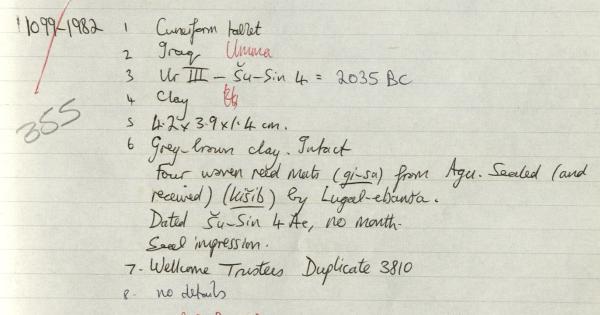 11099-1982 1 Cuneiform tablet
2 Iraq Umma
3 Ur III - Šu-Sin 4 = 2035 BC
4 Clay
355
5 4.2 x 3.9 x 1.4 cm.
6 Grey-brown clay. Intact
Four woven reed mats (gi-sa) from Agu. Sealed (and
received) (kišib) by Lugal-ebansa.
Dated Šu-Sin 4 Ae, no month.
Seal impression.
7. Wellcome Trustees Duplicate 3810
8. no details